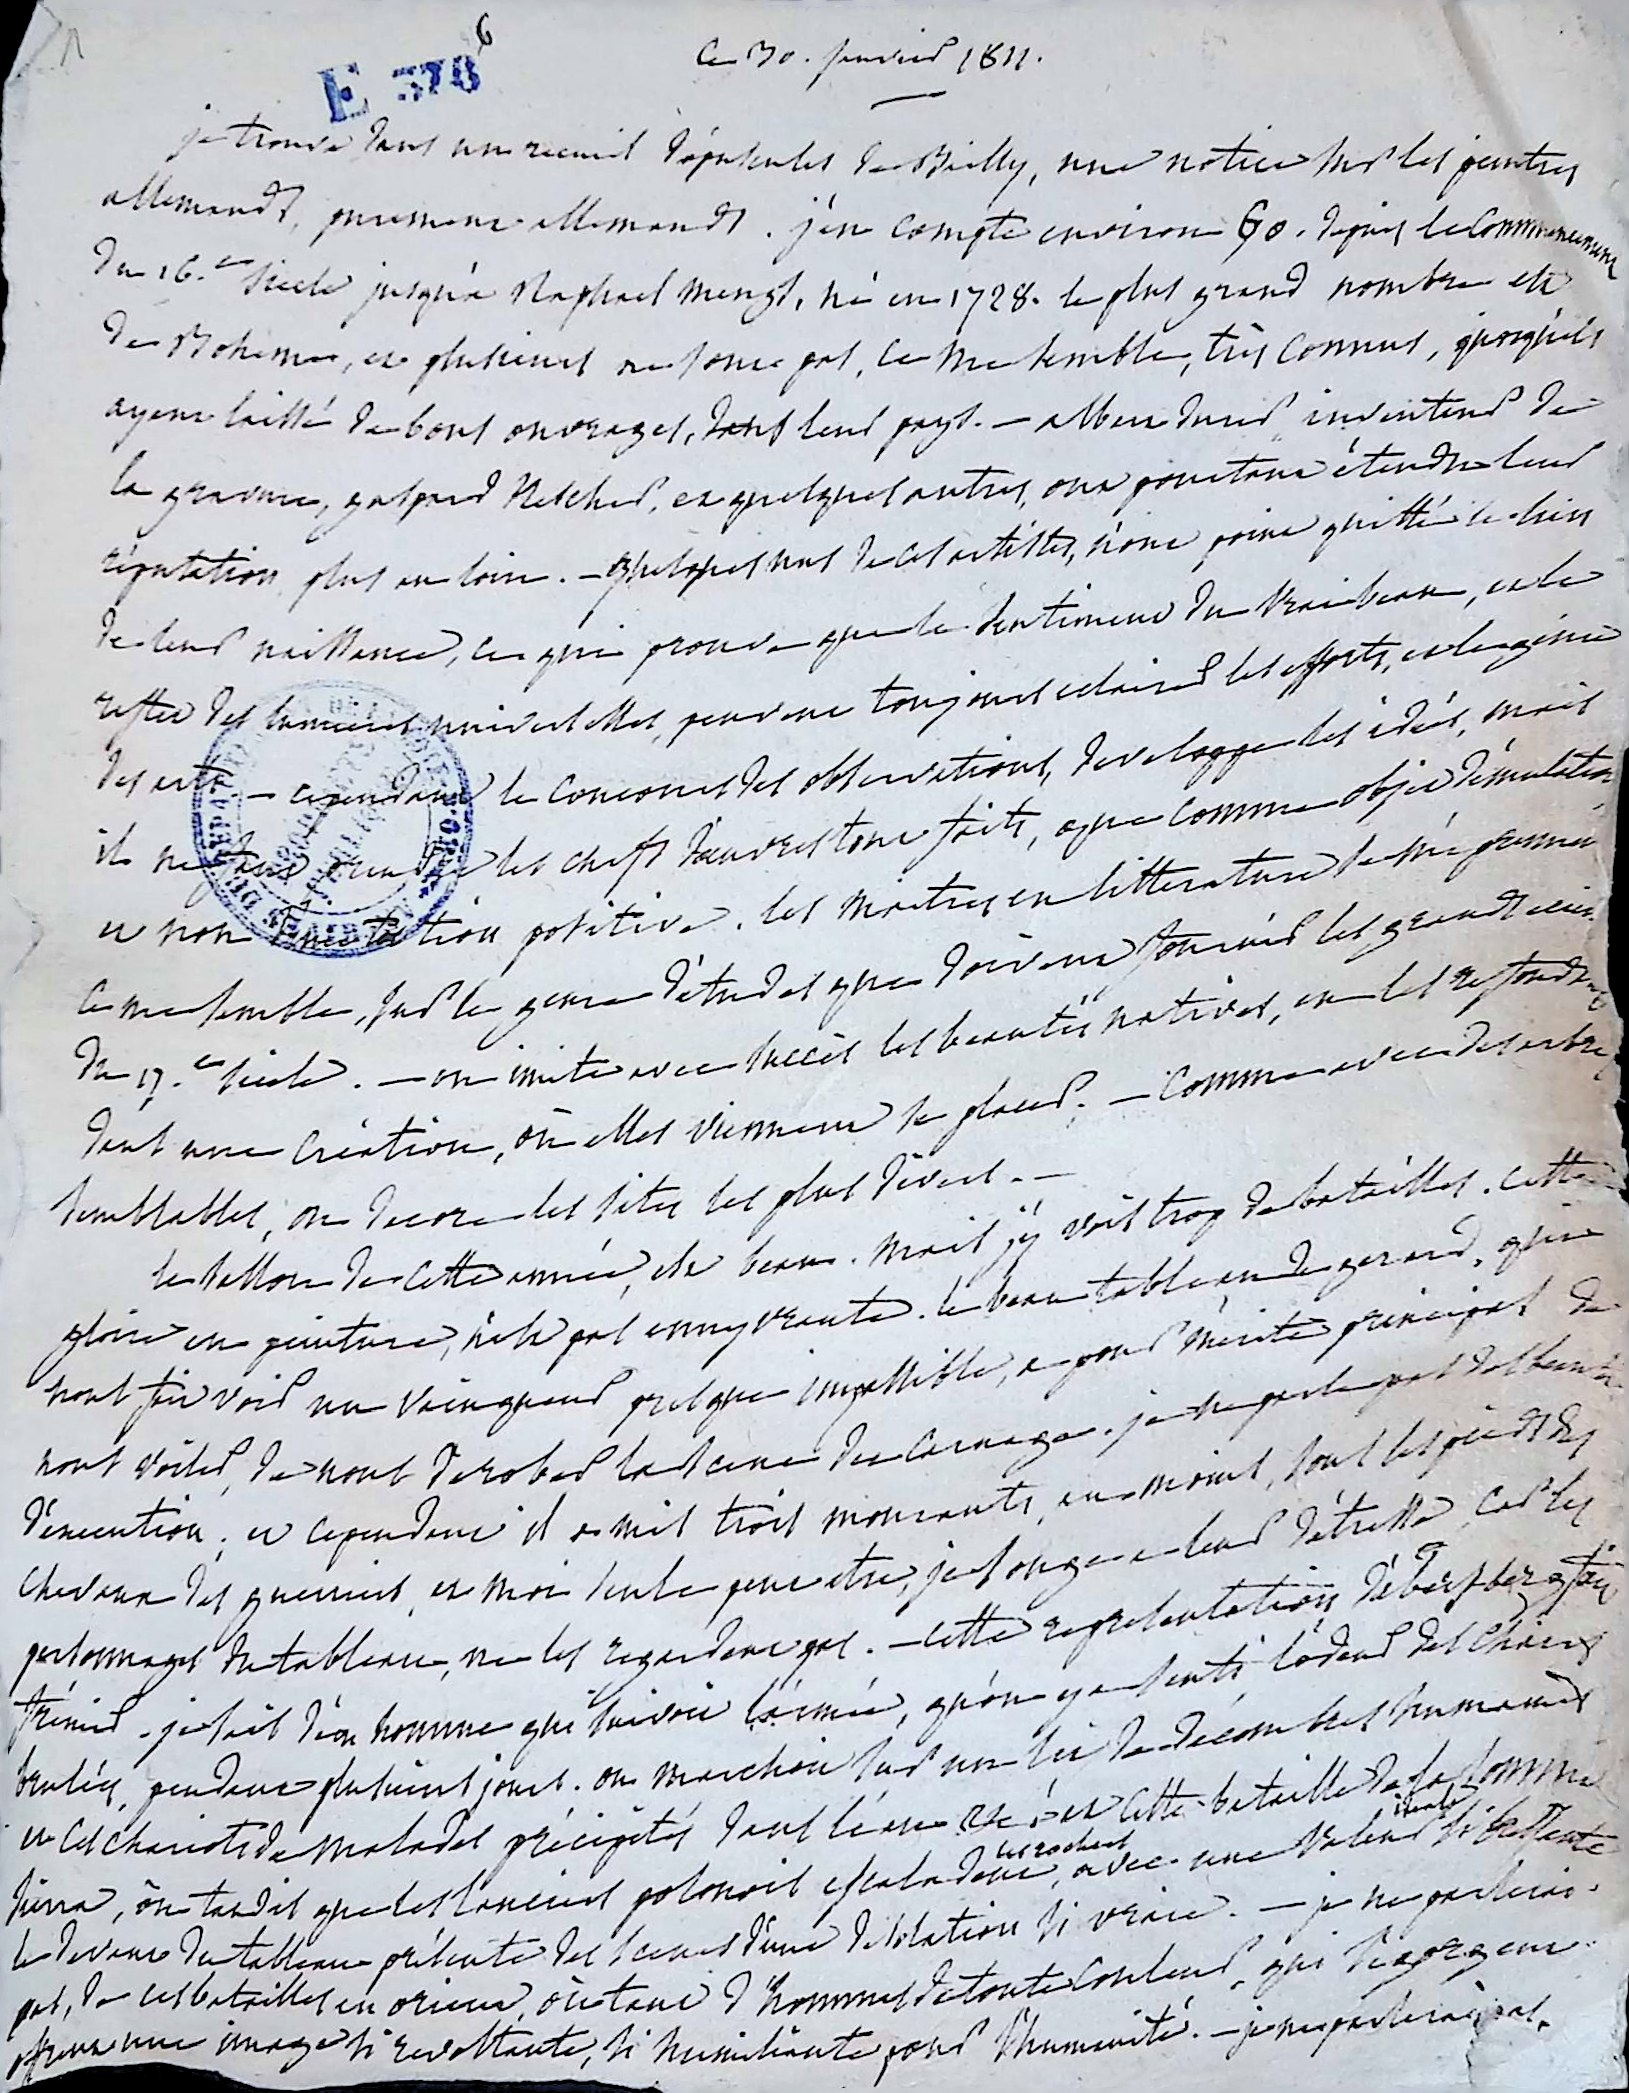 6
E 378
Ce 30. janvier 1811.
je trouve dans un recueil d'opuscules de Bailly, une notice sur les peintres
allemands, purement allemands. j'en compte environ 60. depuis le commencement
du 16.e siecle jusqu'à Raphael Mengs, né en 1728. le plus grand nombre est
de Boheme, et plusieurs ne sont pas, ce me semble, très connus, quoiqu'ils
ayent laissé de bons ouvrages, dans leur pays. — albert durer, inventeur de
la gravure, gaspard Netcher, et quelques autres, ont pourtant étendu leur
réputation plus au loin. — quelques uns de ces artistes, n'ont point quitté le lieu
de leur naissance, ce qui prouve que le sentiment du vrai beau, et le
reflet des lumieres universelles, peuvent toujours eclairer les efforts, et le génie
des arts. — cependant le concours des observations, developpe les idées, mais
il ne faut prendre les chefs d'œuvres tout faits, que comme objet d'émulation,
et non d'imitation positive. les maitres en litterature se méprennent
ce me semble, sur le genre d'études que doivent fournir les grands ecriv.
du 17.e siecle. — on imite avec succès les beautés natives, en les refondant
dans une création, où elles viennent se placer. — comme avec des arbres
semblables, on decore les sites les plus divers. —
le sallon de cette année, est beau. mais j'y vois trop de batailles. cette
gloire en peinture, n'est pas ennyvrante. le beau tableau de gerard, qui
nous fait voir un vainqueur presque impassible, a pour mérite principal de
nous voiler, de nous derober la scene de carnage. je ne parle pas des beautés
d'execution; et cependant il a mis trois mourants, au moins, sous les pieds des
chevaux des guerriers, et moi seule peut etre, je songe a leur détresse, car les
personnages du tableau, ne les regardent pas. — cette representation d'ebersberg fait
frémir. je sais d'un homme qui suivoit l'armée, qu'on y a senti l'odeur des chairs
brulées, pendant plusieurs jours. on marchoit sur un lit de décombres humains
et ces chariots de malades précipités dans l'eau et cette bataille de la somma
sierra, où tandis que les lanciers polonois escaladent les rochers, avec une valeur si brillante
le devant du tableau présente des scenes d'une désolation si vraie. — je ne parlerai
pas, de ces batailles en orient, où tant d'hommes de toute couleur, qui s'egorgent
offrent une image si revoltante, si humiliante pour l'humanité. — je ne parlerai pas,